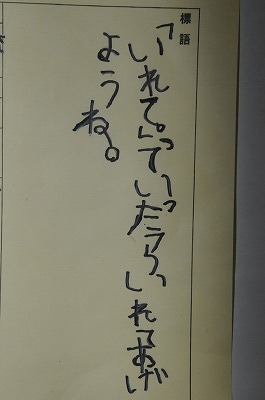 標語
「いれて。」っていったら、いれてあげ
ようね。